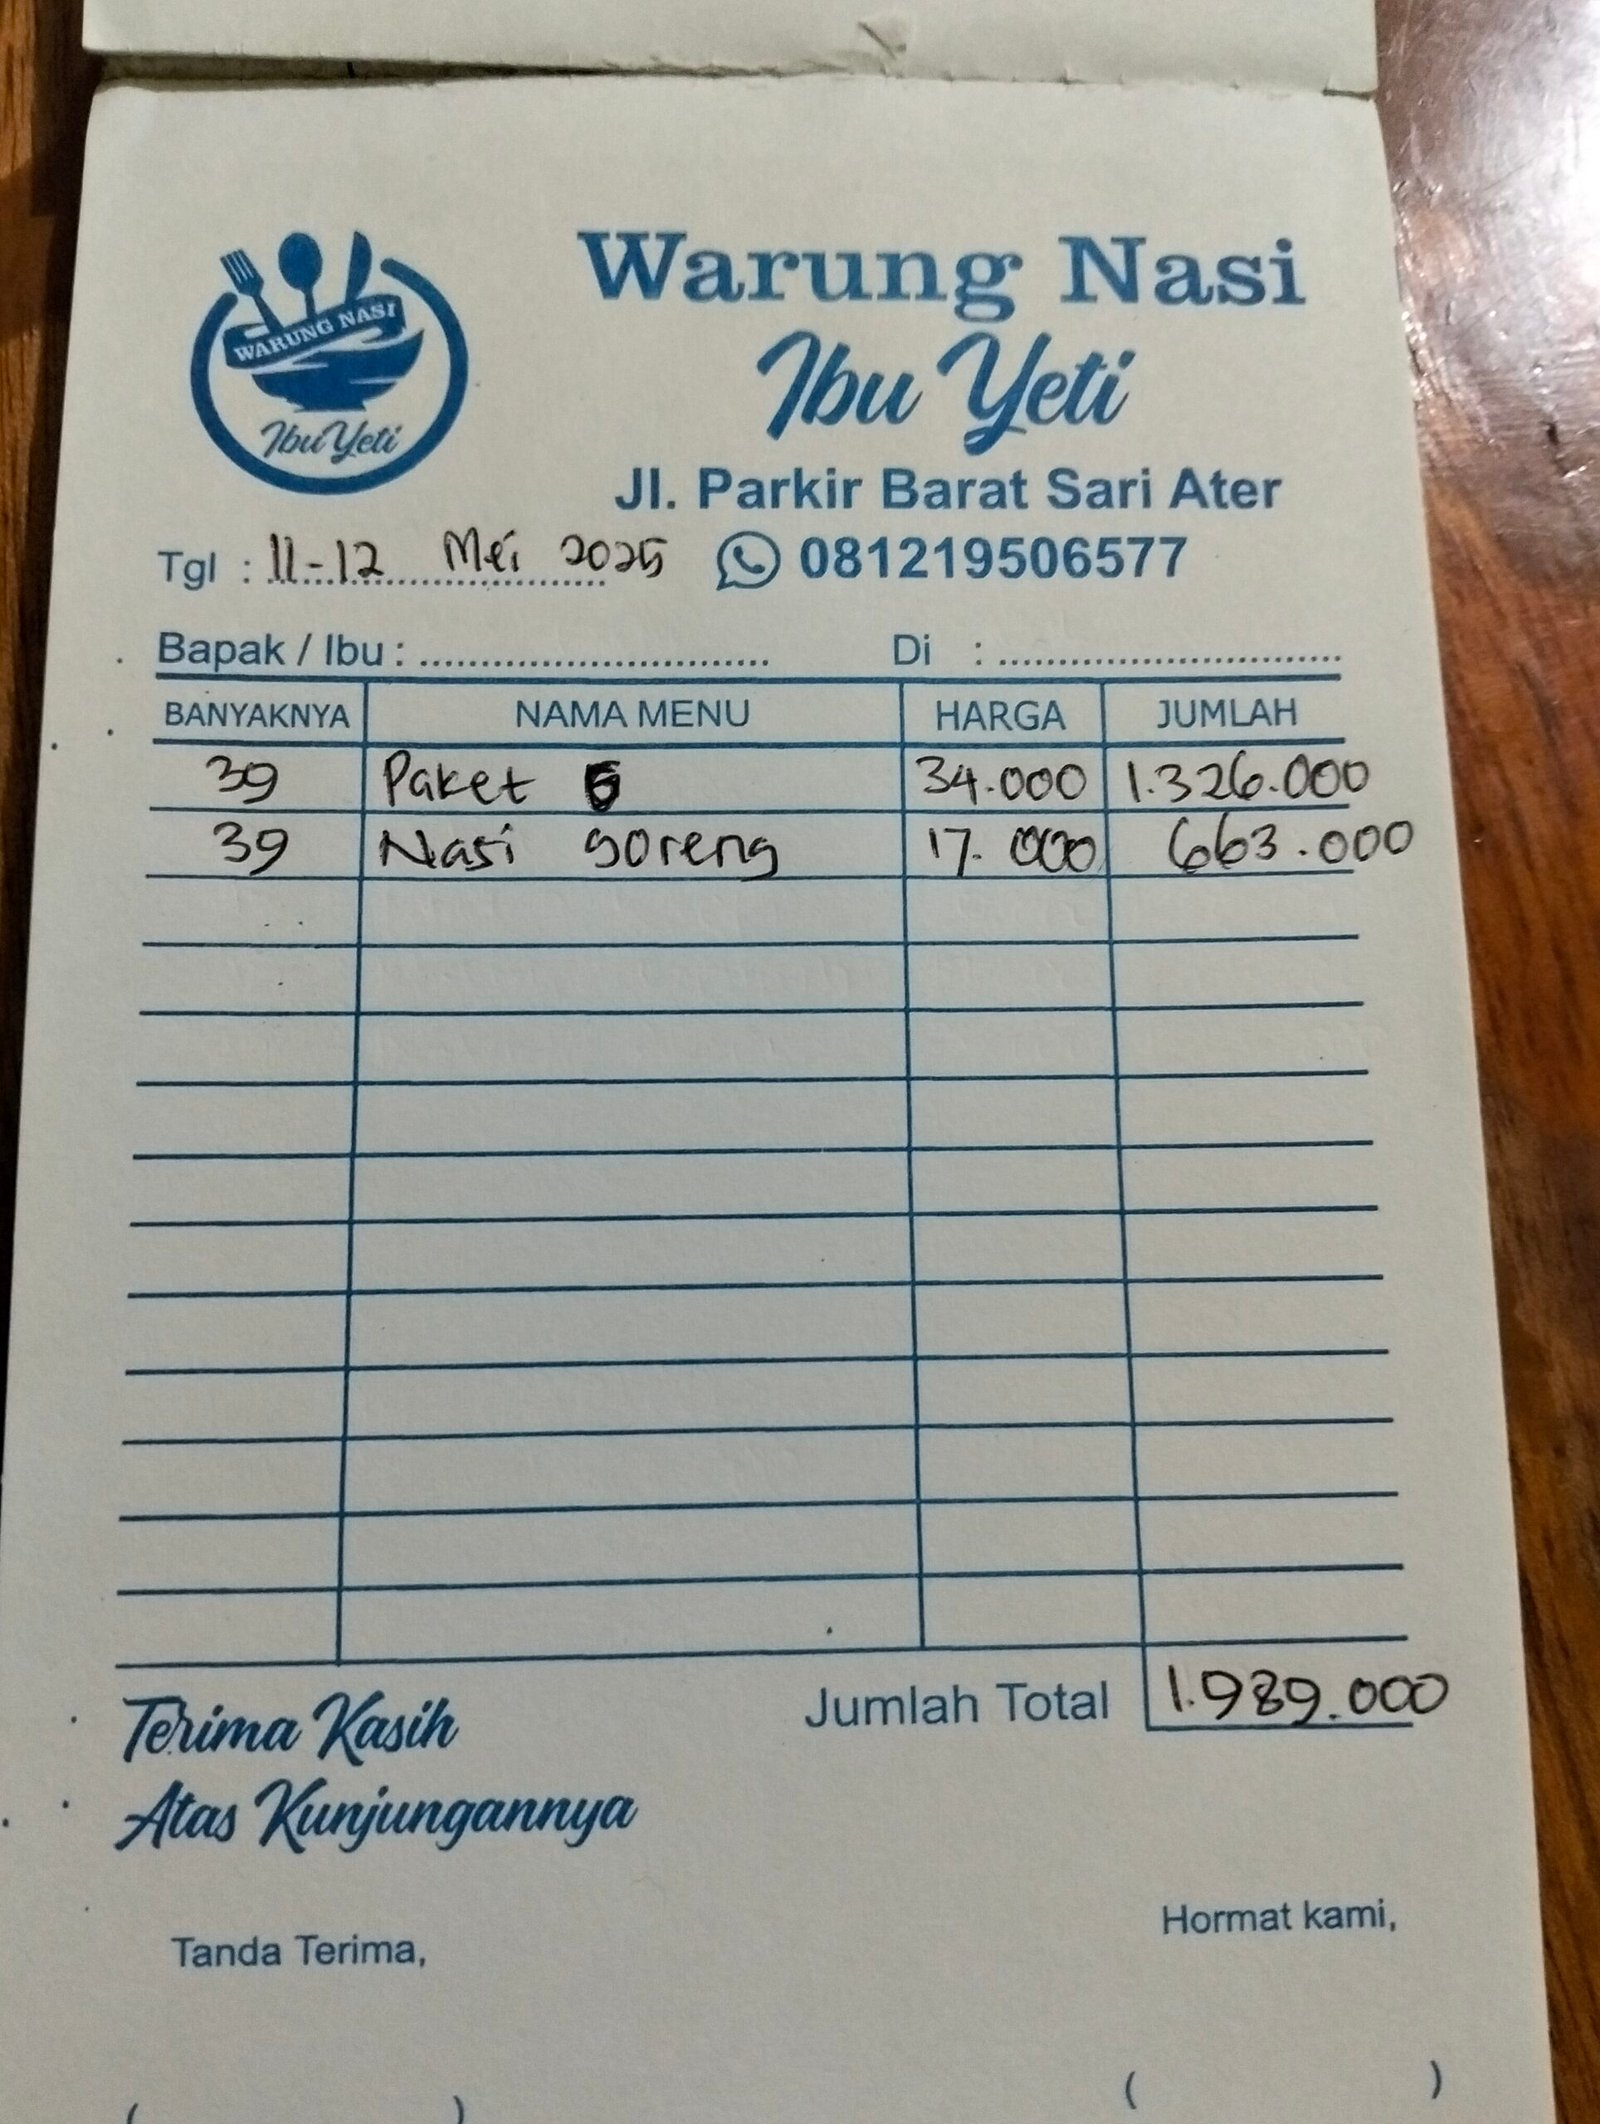 WARUNG NASI
Ibu Yeti
Warung Nasi
Ibu Yeti
Jl. Parkir Barat Sari Ater
Tgl : 11-12 Mei 2025 081219506577
Bapak / Ibu : ............................ Di : ............................
BANYAKNYA NAMA MENU HARGA JUMLAH
39 Paket 5 34.000 1.326.000
39 Nasi goreng 17.000 663.000
Jumlah Total 1.989.000
Terima Kasih
Atas Kunjungannya
Tanda Terima, Hormat kami,
( ) ( )